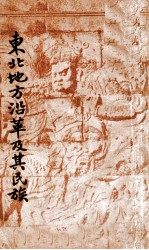 東北地方沿革及其民族